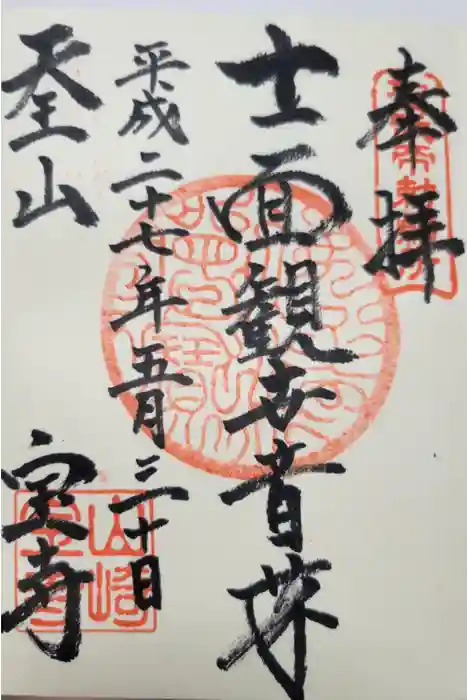 奉拝
十一面観世音菩薩
平成二十七年五月三十日
天王山 宝寺
山崎宝寺